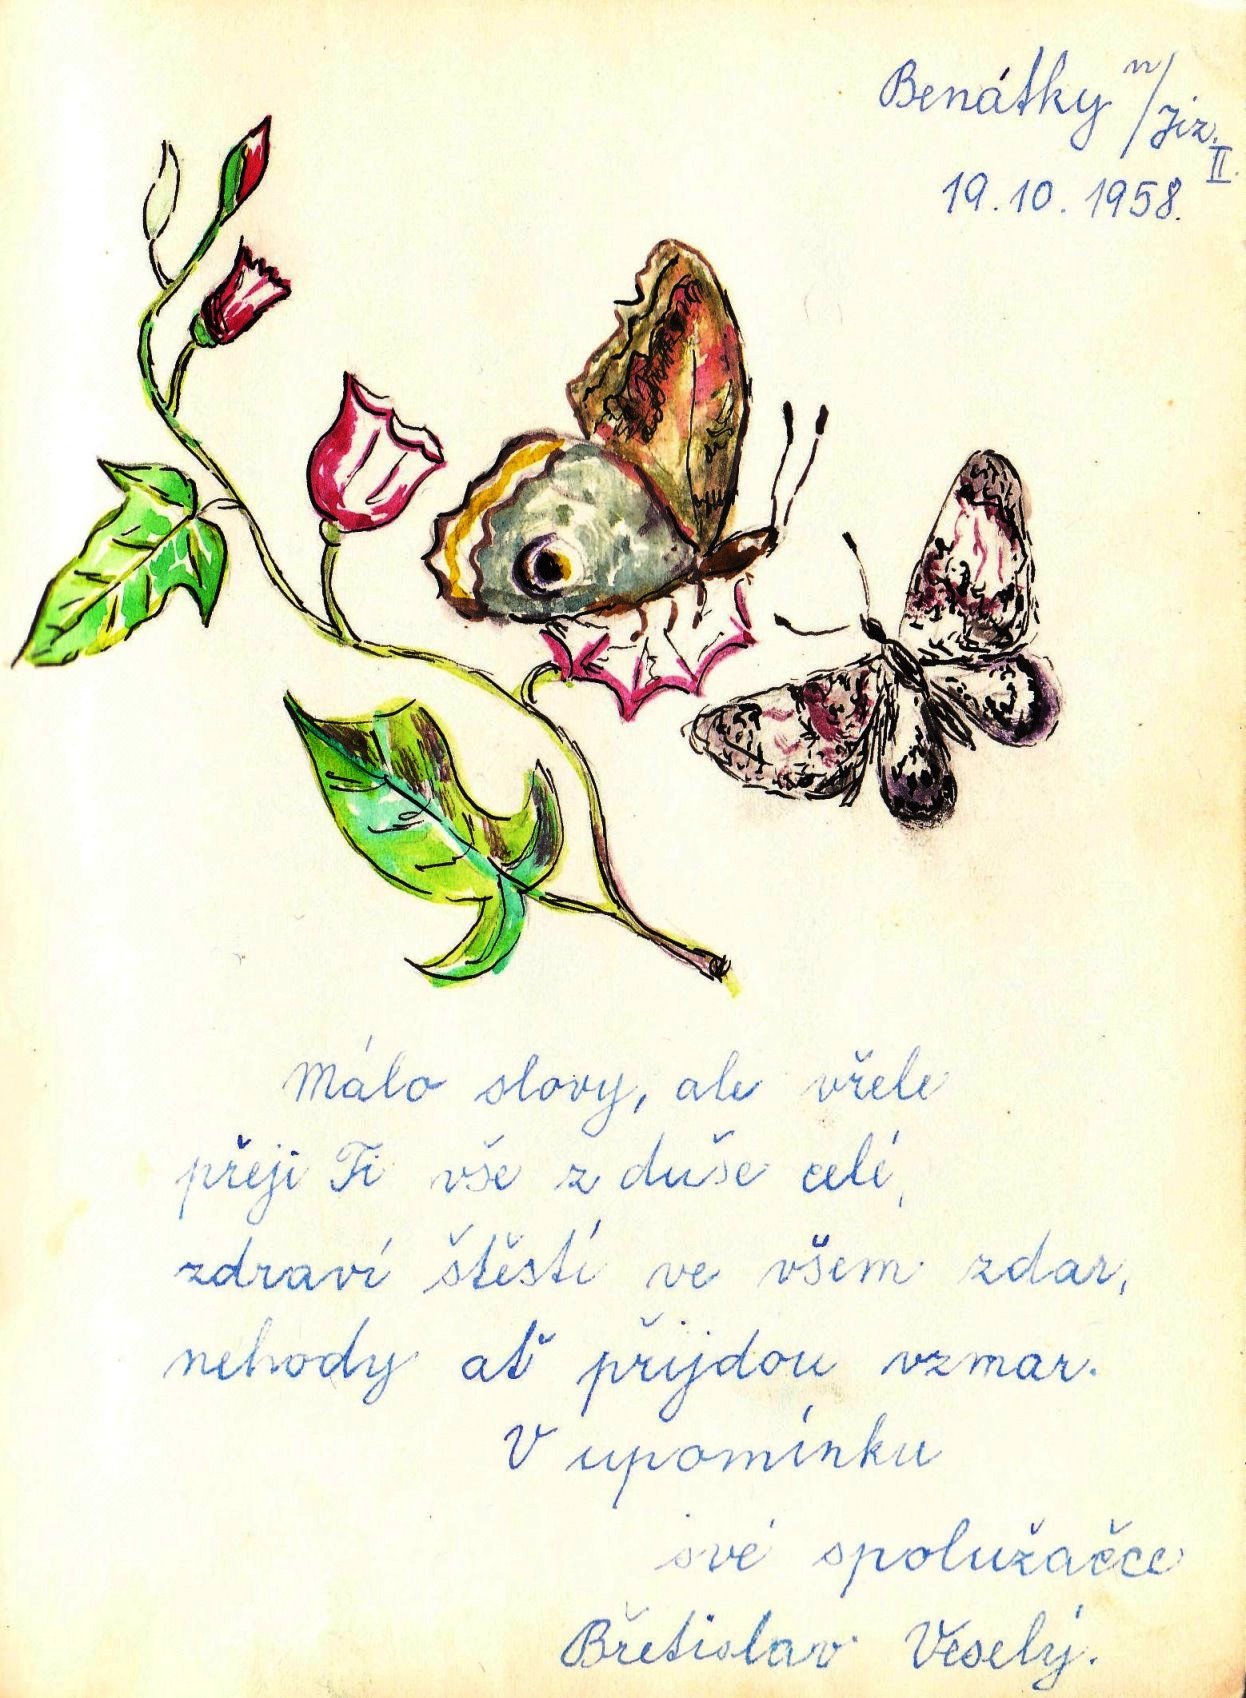 Benátky n/Jiz. II.
19.10.1958.
Málo slovy, ale vřele
přeji Ti vše z duše celé,
zdraví štěstí ve všem zdar,
nehody ať přijdou vzmar.
V upomínku
své spolužačce
Břetislav Veselý.